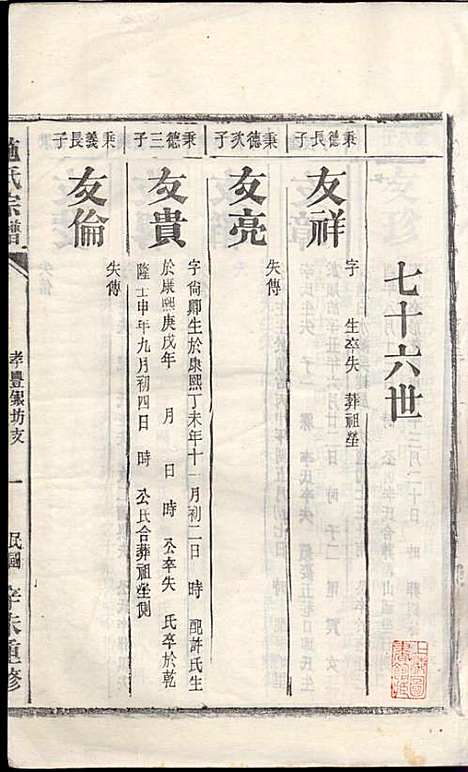 七十六世
秉德長子
友祥
字　生卒失　葬祖塋
秉德次子
友亮
失傳
秉德三子
友貴
字尙卿生於康熙丁未年十一月初二日　時　配許氏生
於康熙庚戌年　月　日　時　公卒失　氏卒於乾
隆壬申年九月初四日　時　公氏合葬祖塋側
秉義長子
友倫
失傳
施氏宗譜
孝豐銀坊支
一
民國
辛未重修
上海圖書館藏